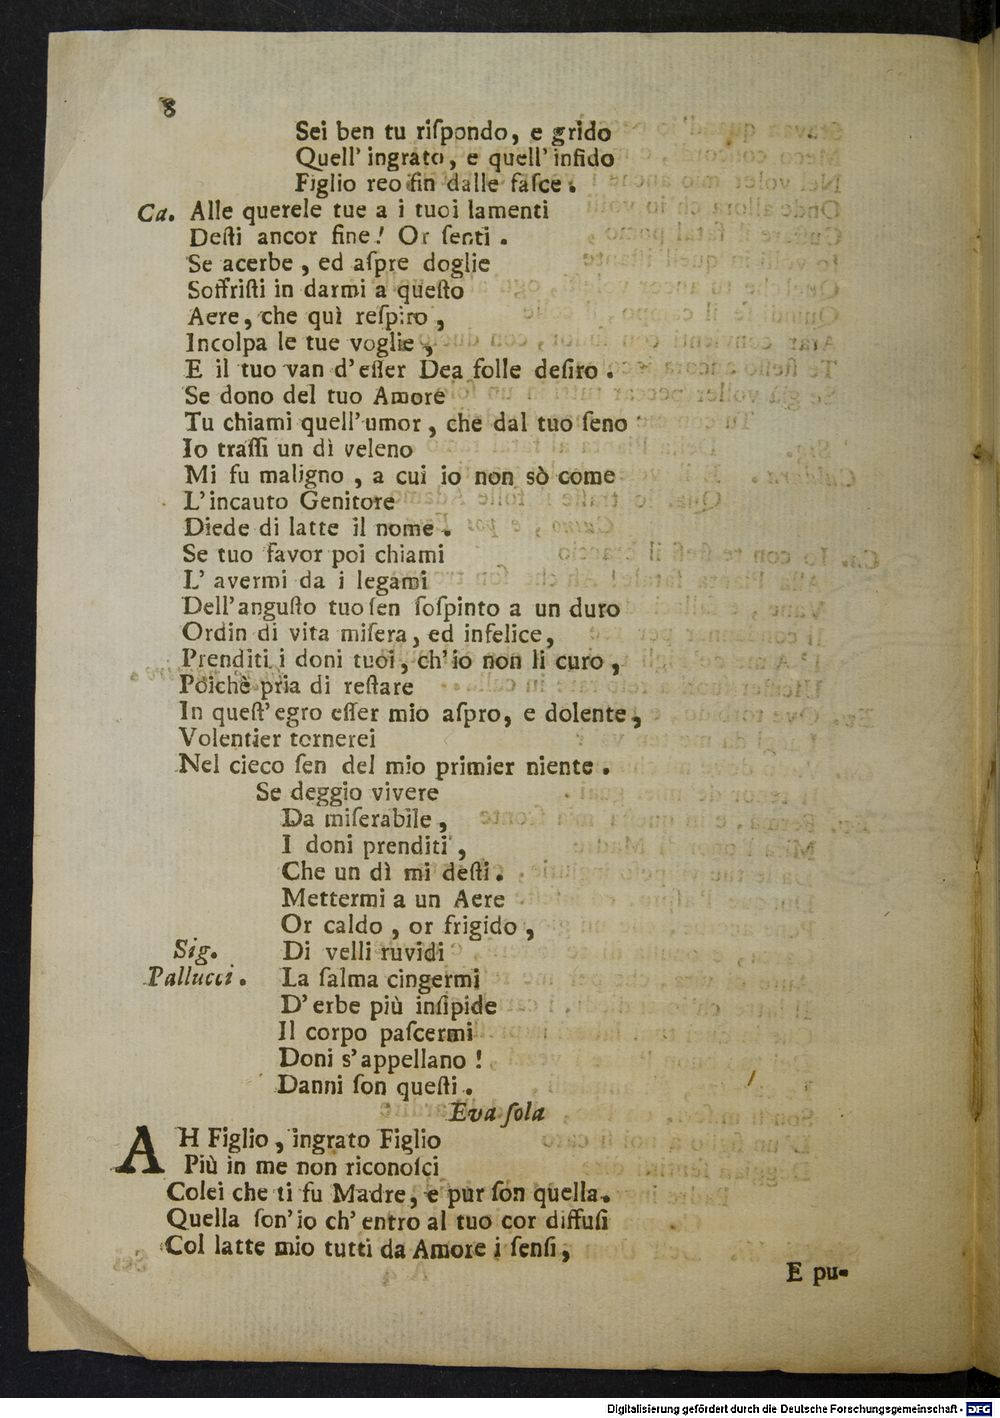 8
Sei ben tu riſpondo, e grido
Quell' ingrato, e quell' infido
Figlio reo fin dalle faſce.
Ca. Alle querele tue a i tuoi lamenti
Deſti ancor fine! Or ſenti.
Se acerbe, ed aſpre doglie
Soffriſti in darmi a queſto
Aere, che quì reſpiro,
Incolpa le tue voglie,
E il tuo van d'eſſer Dea folle deſiro.
Se dono del tuo Amore
Tu chiami quell'umor, che dal tuo ſeno
Io traſſi un dì veleno
Mi fu maligno, a cui io non sò come
L'incauto Genitore
Diede di latte il nome.
Se tuo favor poi chiami
L' avermi da i legami
Dell'anguſto tuo ſen ſoſpinto a un duro
Ordin di vita miſera, ed infelice,
Prenditi i doni tuoi, ch'io non li curo,
Poichè pria di reſtare
In queſt'egro eſſer mio aſpro, e dolente,
Volentier tornerei
Nel cieco ſen del mio primier niente.
Se deggio vivere
Da miſerabile,
I doni prenditi,
Che un dì mi deſti.
Mettermi a un Aere
Or caldo, or frigido,
Sig. Di velli ruvidi
Pallucci. La ſalma cingermi
D'erbe più inſipide
Il corpo paſcermi
Doni s'appellano!
Danni ſon queſti.
Eva ſola
AH Figlio, ingrato Figlio
Più in me non riconoſci
Colei che ti fu Madre, e pur ſon quella.
Quella ſon'io ch'entro al tuo cor diffuſi
Col latte mio tutti da Amore i ſenſi,
E pu-
Digitalisierung gefördert durch die Deutsche Forschungsgemeinschaft - DFG